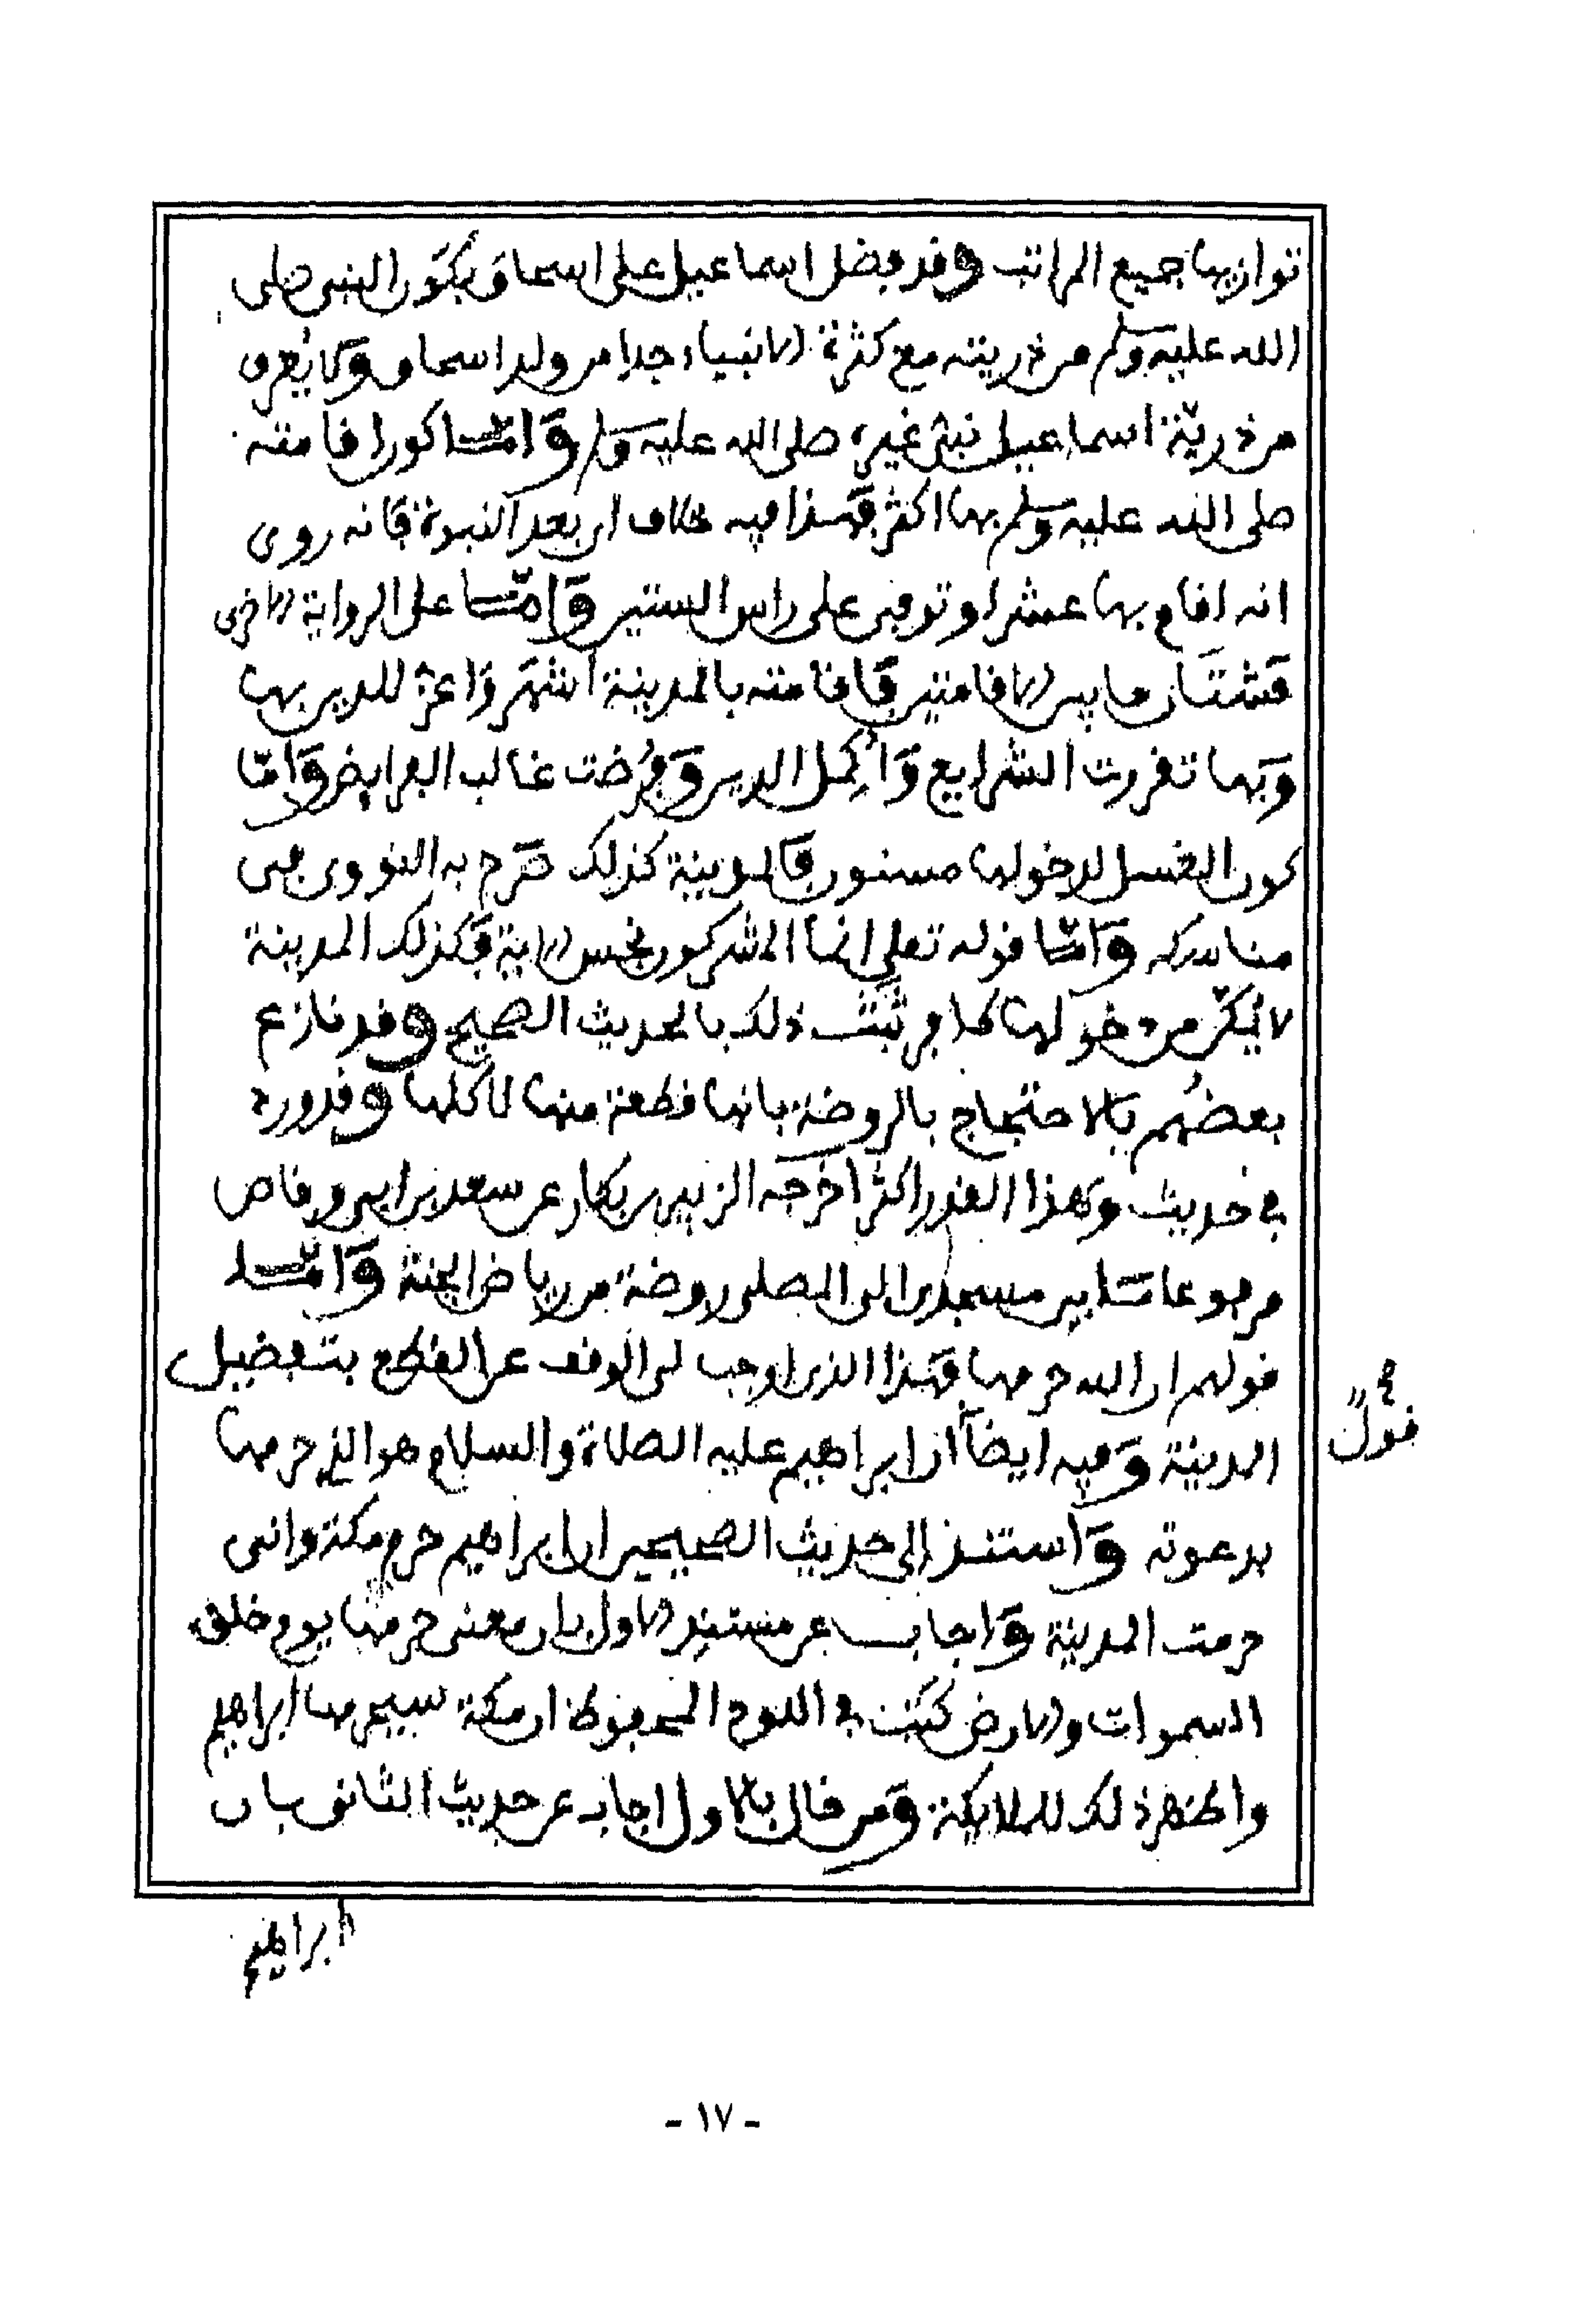 توازيها جميع المراتب وقد فضل اسماعيل على اسحاق بكون النبي صلى
الله عليه وسلم من ذريته مع كثرة الانبياء جدا من ولد اسحاق ولا يعرف
من ذريّة اسماعيل نبيّ غيره صلى الله عليه وسلم وأمّا كون اقامته
صلى الله عليه وسلم بها اكثر فهذا فيه خلاف اي بعد النبوة فانه روى
انه اقام بها عشرا وتوفي على راس الستين وَأمّا على الرواية الاخرى
فشتَّان ما بين الاقامتين فاقامته بالمدينة اشهر وأعزّ للدين بها
وَبها تقررت الشرايع وَأُكمِل الدين وَفُرضت غالب الفرايض وَأمّا
كون الغسل لدخولها مسنون فالمدينة كذلك صَرّح به النووي في
مناسكه وَأمّا قوله تعلى انما المشركون نجس الاية فكذلك المدينة
لا يُمكّن من دخولها كافر ثبَت ذلك بالحديث الصحيح وقد نازع
بعضُهم بالاحتجاج بالروضة بانها قطعة منها لا كلها وقد ورد
في حديث وهذا القدر اكثر اخرجه الزبير بن بكار عن سعد بن ابي وقاص
مرفوعا ما بين مسجدي الى المصلى روضة من رياض الجنة وَأمّا
قولهم ان الله حرمها فهذا الذي اوجب لي الوقف عن القطع بتفضيل
المدينة وَفيه ايضاً أن ابراهيم عليه الصلاة والسلام هو الذي حرمها
قول
بدعوته وَاستند الى حديث الصحيحين ان ابراهيم حرم مكة واني
حرمت المدينة وَاجاب عن مستند الاول بان معنى حرمها يوم خلق
السموات والارض كتب في اللوح المحفوظ ان مكة سيحرمها ابراهيم
واظهر ذلك للملايكة وَمن قال بالاول اجاب عن حديث الثاني بان
ابراهيم
- ١٧ -